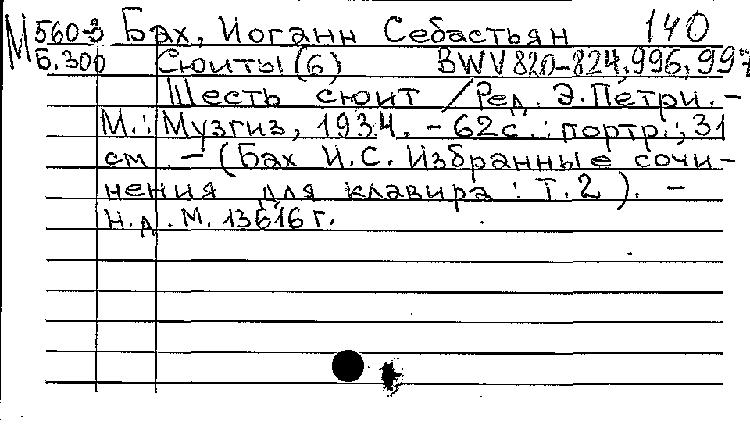 М 560-3 Бах, Иоганн Себастьян 140
Б.300 Сюиты (6) BWV 820-824, 996, 997
Шесть сюит / Ред. Э. Петри. -
М.: Музгиз, 1934. - 62 с.: портр.; 31
см - (Бах И.С. Избранные сочи-
нения для клавира: Т.2). -
Н.д. М. 13616 г.